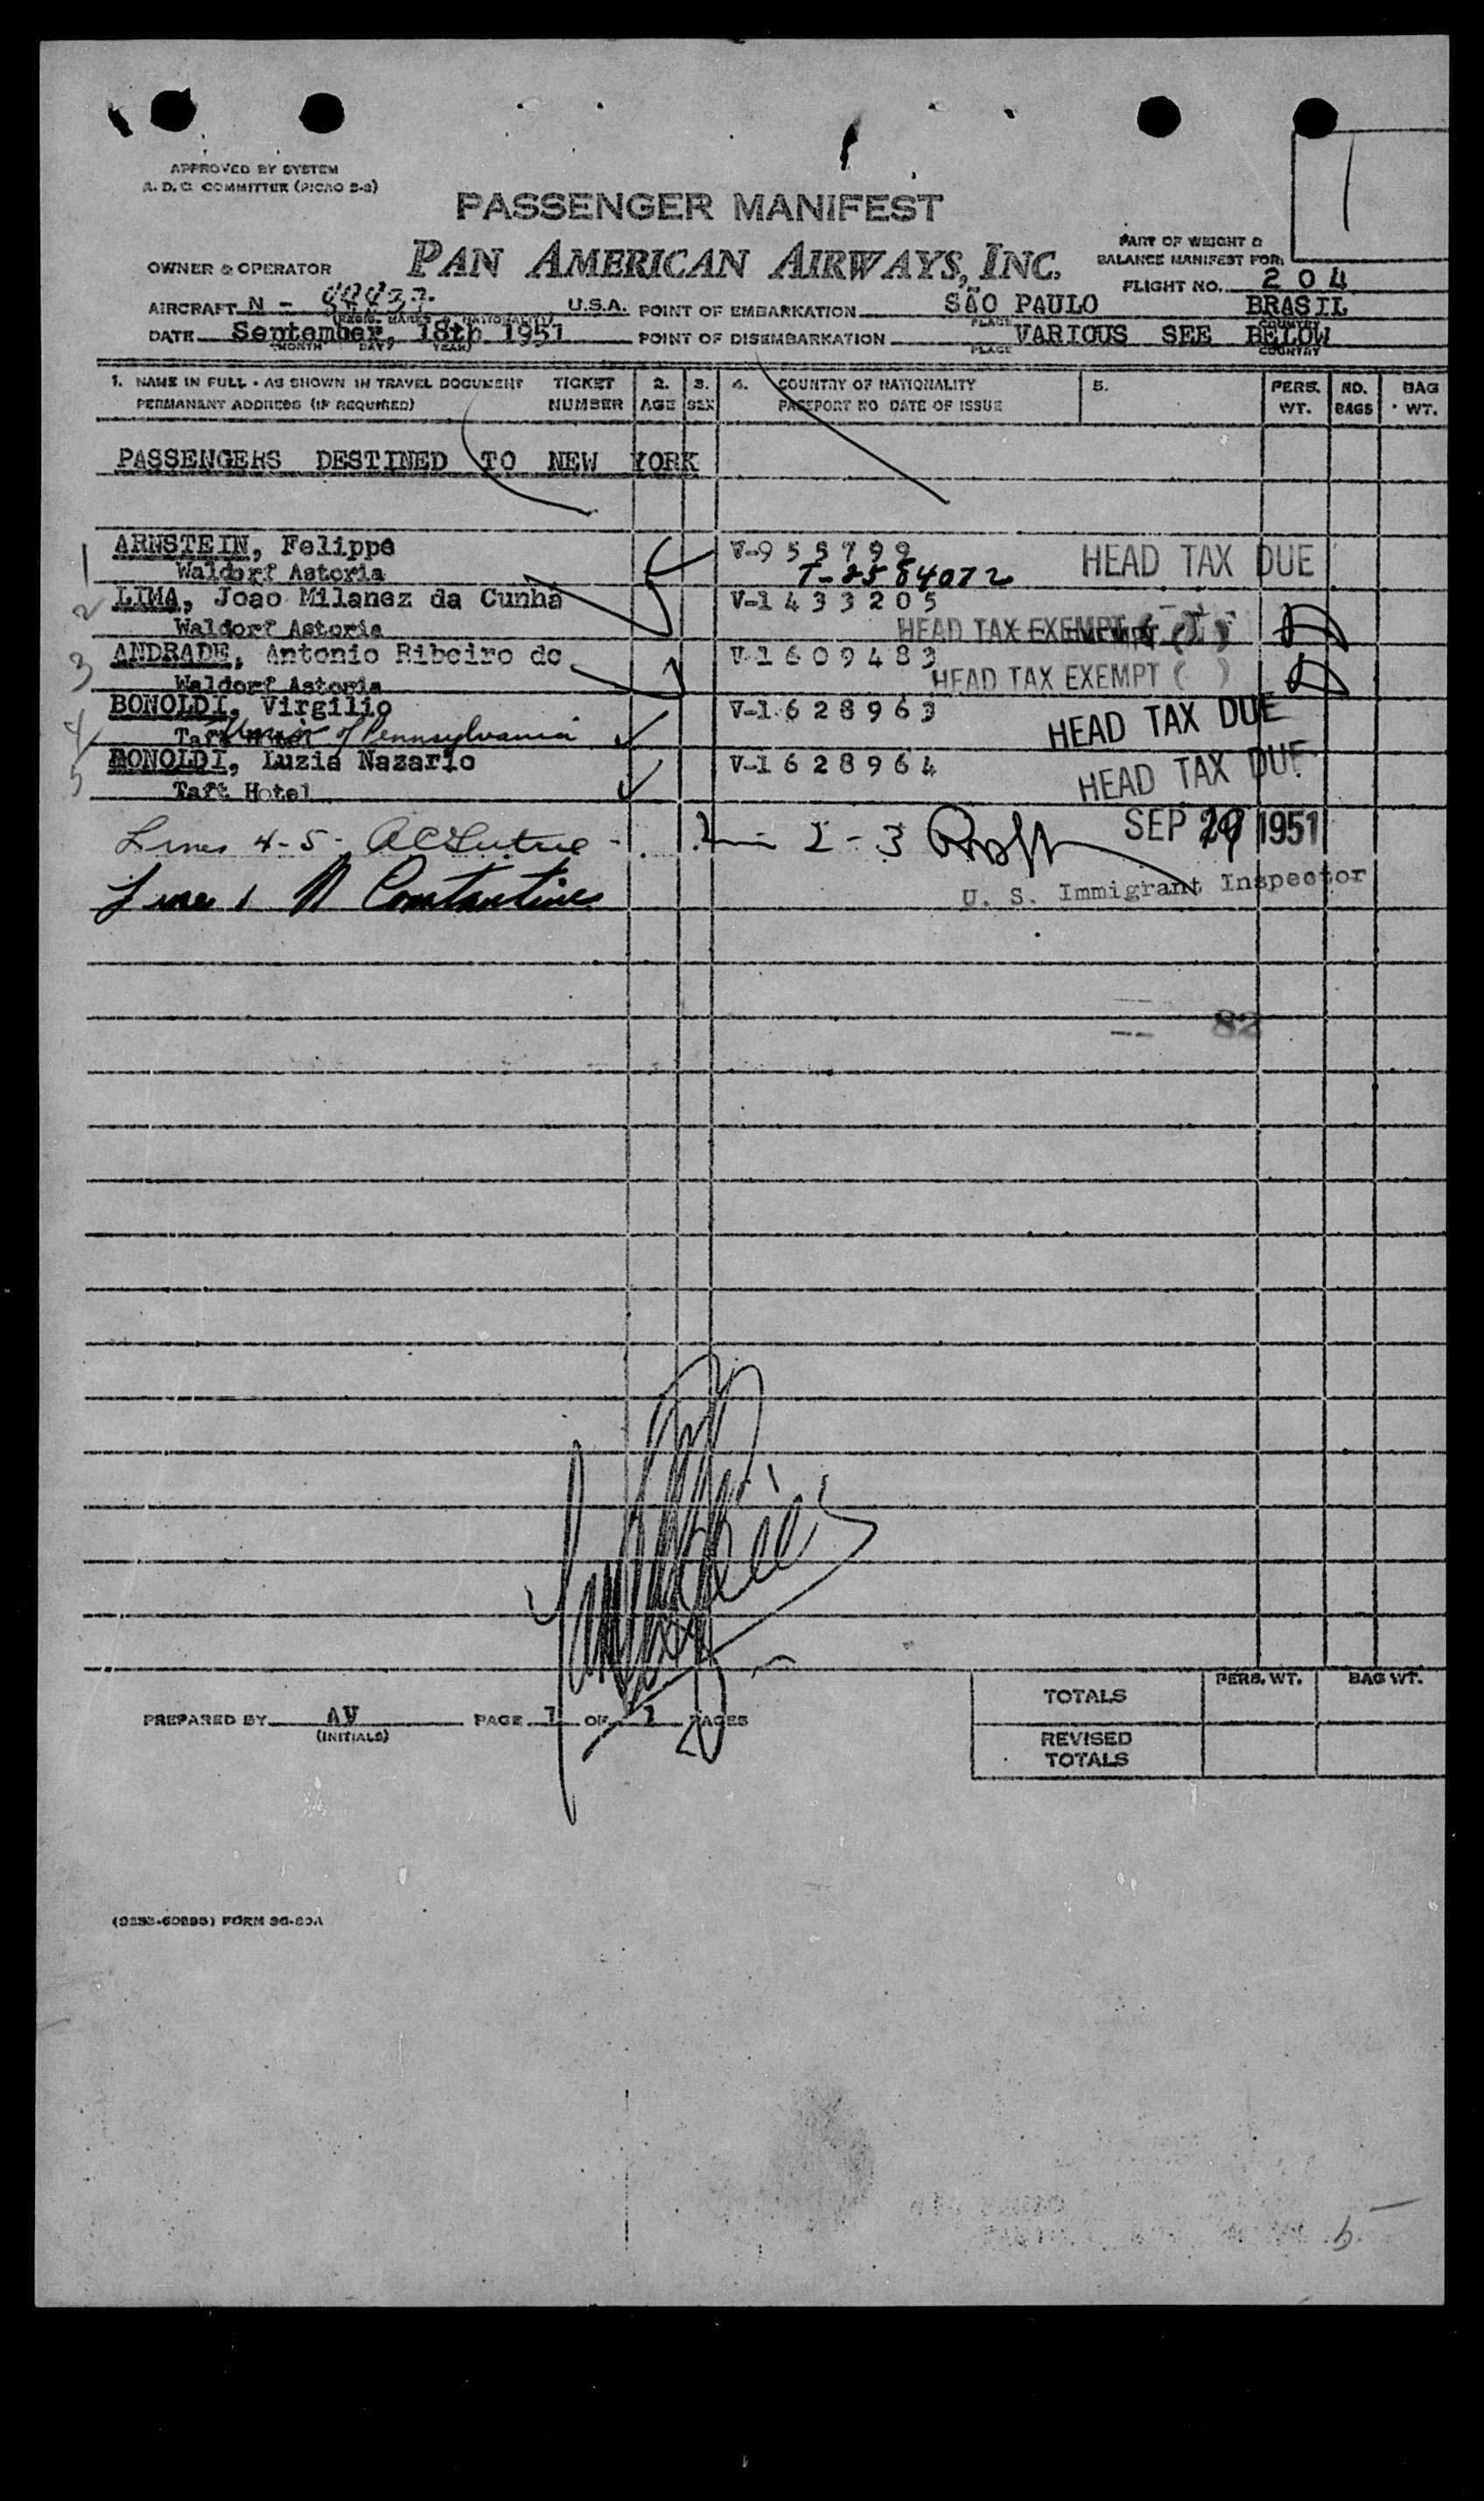 APPROVED BY SYSTEM
A. D. C. COMMITTEE (PICAO 5-2)
PASSENGER MANIFEST
PAN AMERICAN AIRWAYS, INC.
PART OF WEIGHT &
BALANCE MANIFEST FOR:
OWNER & OPERATOR
FLIGHT NO. 204
AIRCRAFT N - U.S.A. POINT OF EMBARKATION SÃO PAULO BRASIL
(REGIS. MARKS & NATIONALITY) PLACE COUNTRY
DATE September, 18th 1951 POINT OF DISEMBARKATION VARIOUS SEE BELOW
(MONTH DAY YEAR) PLACE COUNTRY
1. NAME IN FULL - AS SHOWN IN TRAVEL DOCUMENT TICKET 2. 3. 4. COUNTRY OF NATIONALITY 5. PERS. NO. BAG
PERMANANT ADDRESS (IF REQUIRED) NUMBER AGE SEX PASSPORT NO DATE OF ISSUE WT. BAGS WT.
PASSENGERS DESTINED TO NEW YORK
1 ARNSTEIN, Felippe V-955799 HEAD TAX DUE
Waldorf Astoria T-2584072
2 LIMA, Joao Milanez da Cunha V-1433205
Waldorf Astoria HEAD TAX EXEMPT
3 ANDRADE, Antonio Ribeiro de V-1609483
Waldorf Astoria HEAD TAX EXEMPT ( )
4 BONOLDI, Virgilio V-1628963 HEAD TAX DUE
Taft of Pennsylvania
5 BONOLDI, Luzia Nazario V-1628964 HEAD TAX DUE
Taft Hotel
Lines 4-5- 2-3 SEP 1951
Line 1 N Constantine U. S. Immigrant Inspector
82
PREPARED BY AV PAGE 1 OF 1 PAGES
(INITIALS)
PERS. WT. BAG WT.
TOTALS
REVISED
TOTALS